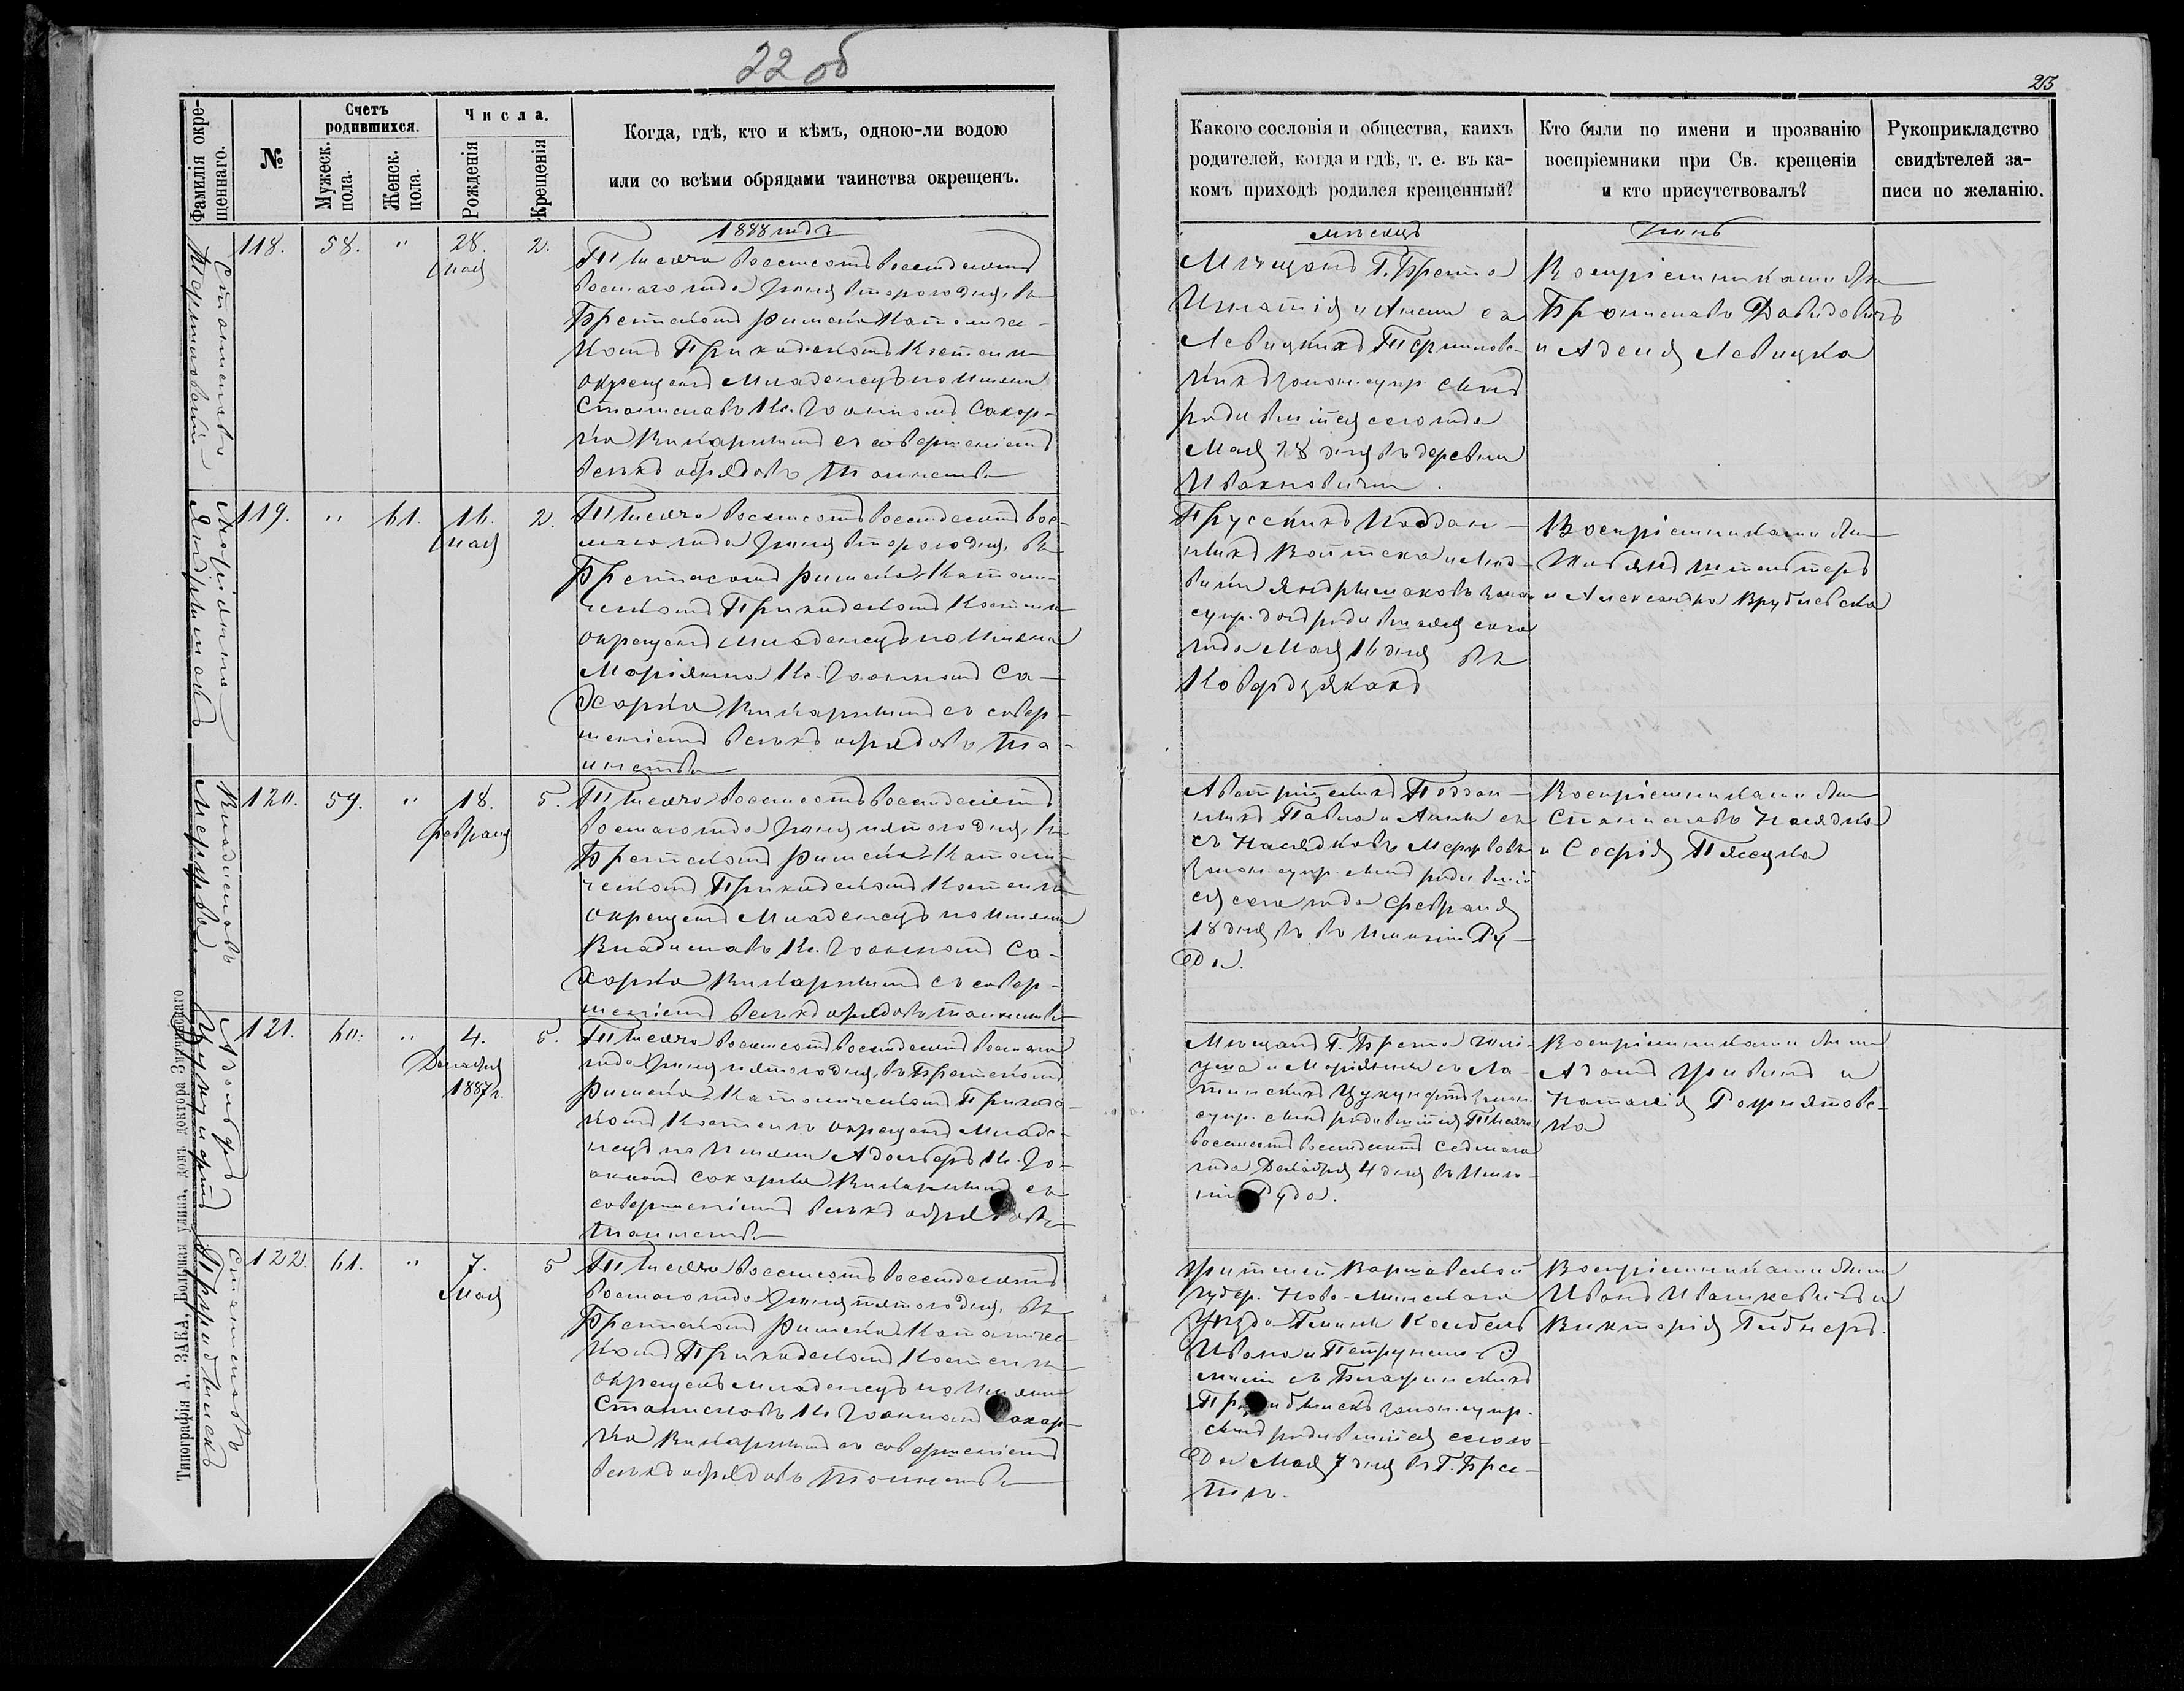 22 об
23
Фамилія окре-
щеннаго.
№
Счетъ
родившихся.
Мужеск.
пола.
Женск.
пола.
Числа.
Рожденія
Крещенія
Когда, гдѣ, кто и кѣмъ, одною-ли водою
или со всѣми обрядами таинства окрещенъ.
Какого сословія и общества, каихъ
родителей, когда и гдѣ, т. е. въ ка-
комъ приходѣ родился крещенный?
Кто были по имени и прозванію
воспріемники при Св. крещеніи
и кто присутствовалъ?
Рукоприкладство
свидѣтелей за-
писи по желанію.
1888 годъ
мѣсяцъ
Іюнь
Станиславъ
118.
58.
"
28.
Мая
2.
Тысяча восемьсотъ восемьдесятъ
восьмаго года Іюня втораго дня, въ
Брестскомъ Римско Католичес-
комъ Приходскомъ Костелѣ
окрещенъ Младенецъ по имени
Станиславъ Кс. Іоанномъ Сахар-
ко Викаріемъ съ совершеніемъ
всѣхъ обрядовъ Таинства
Мѣщанъ Г. Бреста
Игнатія и Анны съ
Левицкихъ
закон. супр. сынъ
родившійся сего года
Мая 28 дня въ деревни
Ивахновичи.
Воспріемниками были
Брониславъ Давидовичъ
и Аделя Левицка
Маріянна
Яндрышакъ
119.
"
61.
16.
Мая
2.
Тысяча восемьсотъ восемьдесятъ вось-
маго года Іюня втораго дня, въ
Брестскомъ Римско Католи-
ческомъ Приходскомъ Костелѣ
окрещенъ Младенецъ по имени
Маріянна Кс. Іоанномъ Са-
харко Викаріемъ съ совер-
шеніемъ всѣхъ обрядовъ Та-
инства
Прусскихъ Поддан-
ныхъ Войтеха и Люд-
вики Яндрышаковъ закон.
супр. дочь родившаяся сего
года Мая 16 дня въ
Ковердзякахъ
Воспріемниками были
и Александра Врублевска
Владиславъ
Мервва
120.
59.
"
18.
Февраля
5.
Тысяча восемьсотъ восемьдесятъ
восьмаго года Іюня пятаго дня, въ
Брестскомъ Римско Католи-
ческомъ Приходскомъ Костелѣ
окрещенъ Младенецъ по имени
Владиславъ Кс. Іоанномъ Са-
харко Викаріемъ съ совер-
шеніемъ всѣхъ обрядовъ таинства
Австрійскихъ Поддан-
ныхъ Павла и Анны
съ Наседковъ
закон. супр. сынъ родившій-
ся сего года Февраля
18 дня въ въ имѣніи Ру-
да.
Воспріемниками были
Станиславъ Наседка
и Софія Пясецка
Адольфъ
Цукунфтъ
121.
60.
"
4.
Декабря
1887 г.
5.
Тысяча восемьсотъ восемьдесятъ восьмаго
года Іюня пятаго дня, въ Брестскомъ
Римско Католическомъ Приходс-
комъ Костелѣ окрещенъ Младе-
нецъ по имени Адольфъ Кс. Іо-
анномъ Сахарко Викаріемъ съ
совершеніемъ всѣхъ обрядовъ
таинства
Мѣщанъ Г. Бреста
и Маріянны съ Ла-
тинскихъ Цукунфтъ закон.
супр. сынъ родившійся Тысяча
восемьсотъ восемьдесятъ седьмаго
года Декабря 4 дня въ имѣ-
ніи Руда.
Воспріемниками были
Адамъ и
Наталія Рощиятовс-
ка
Станиславъ
122.
61.
"
7.
Мая
5
Тысяча восемьсотъ восемьдесятъ
восьмаго года Іюня пятаго дня, въ
Брестскомъ Римско Католичес-
комъ Приходскомъ Костелѣ
окрещенъ младенецъ по имени
Станиславъ Кс. Іоанномъ Сахар-
ко Викаріемъ съ совершеніемъ
всѣхъ обрядовъ Таинства
Жителей Варшавской
губер. Ново-Минскаго
Уѣзда Гмины Колбель
Ивана и Петрунели Э
миліи съ
закон. супр.
сынъ родившійся сего го-
да Мая 7 дня въ Г. Брес-
тѣ.
Воспріемниками были
Иванъ Ивашкевичъ и
Викторія Гибнеръ.
Типографія А. ЗАКА, Большая улица, домъ доктора Зелинскаго